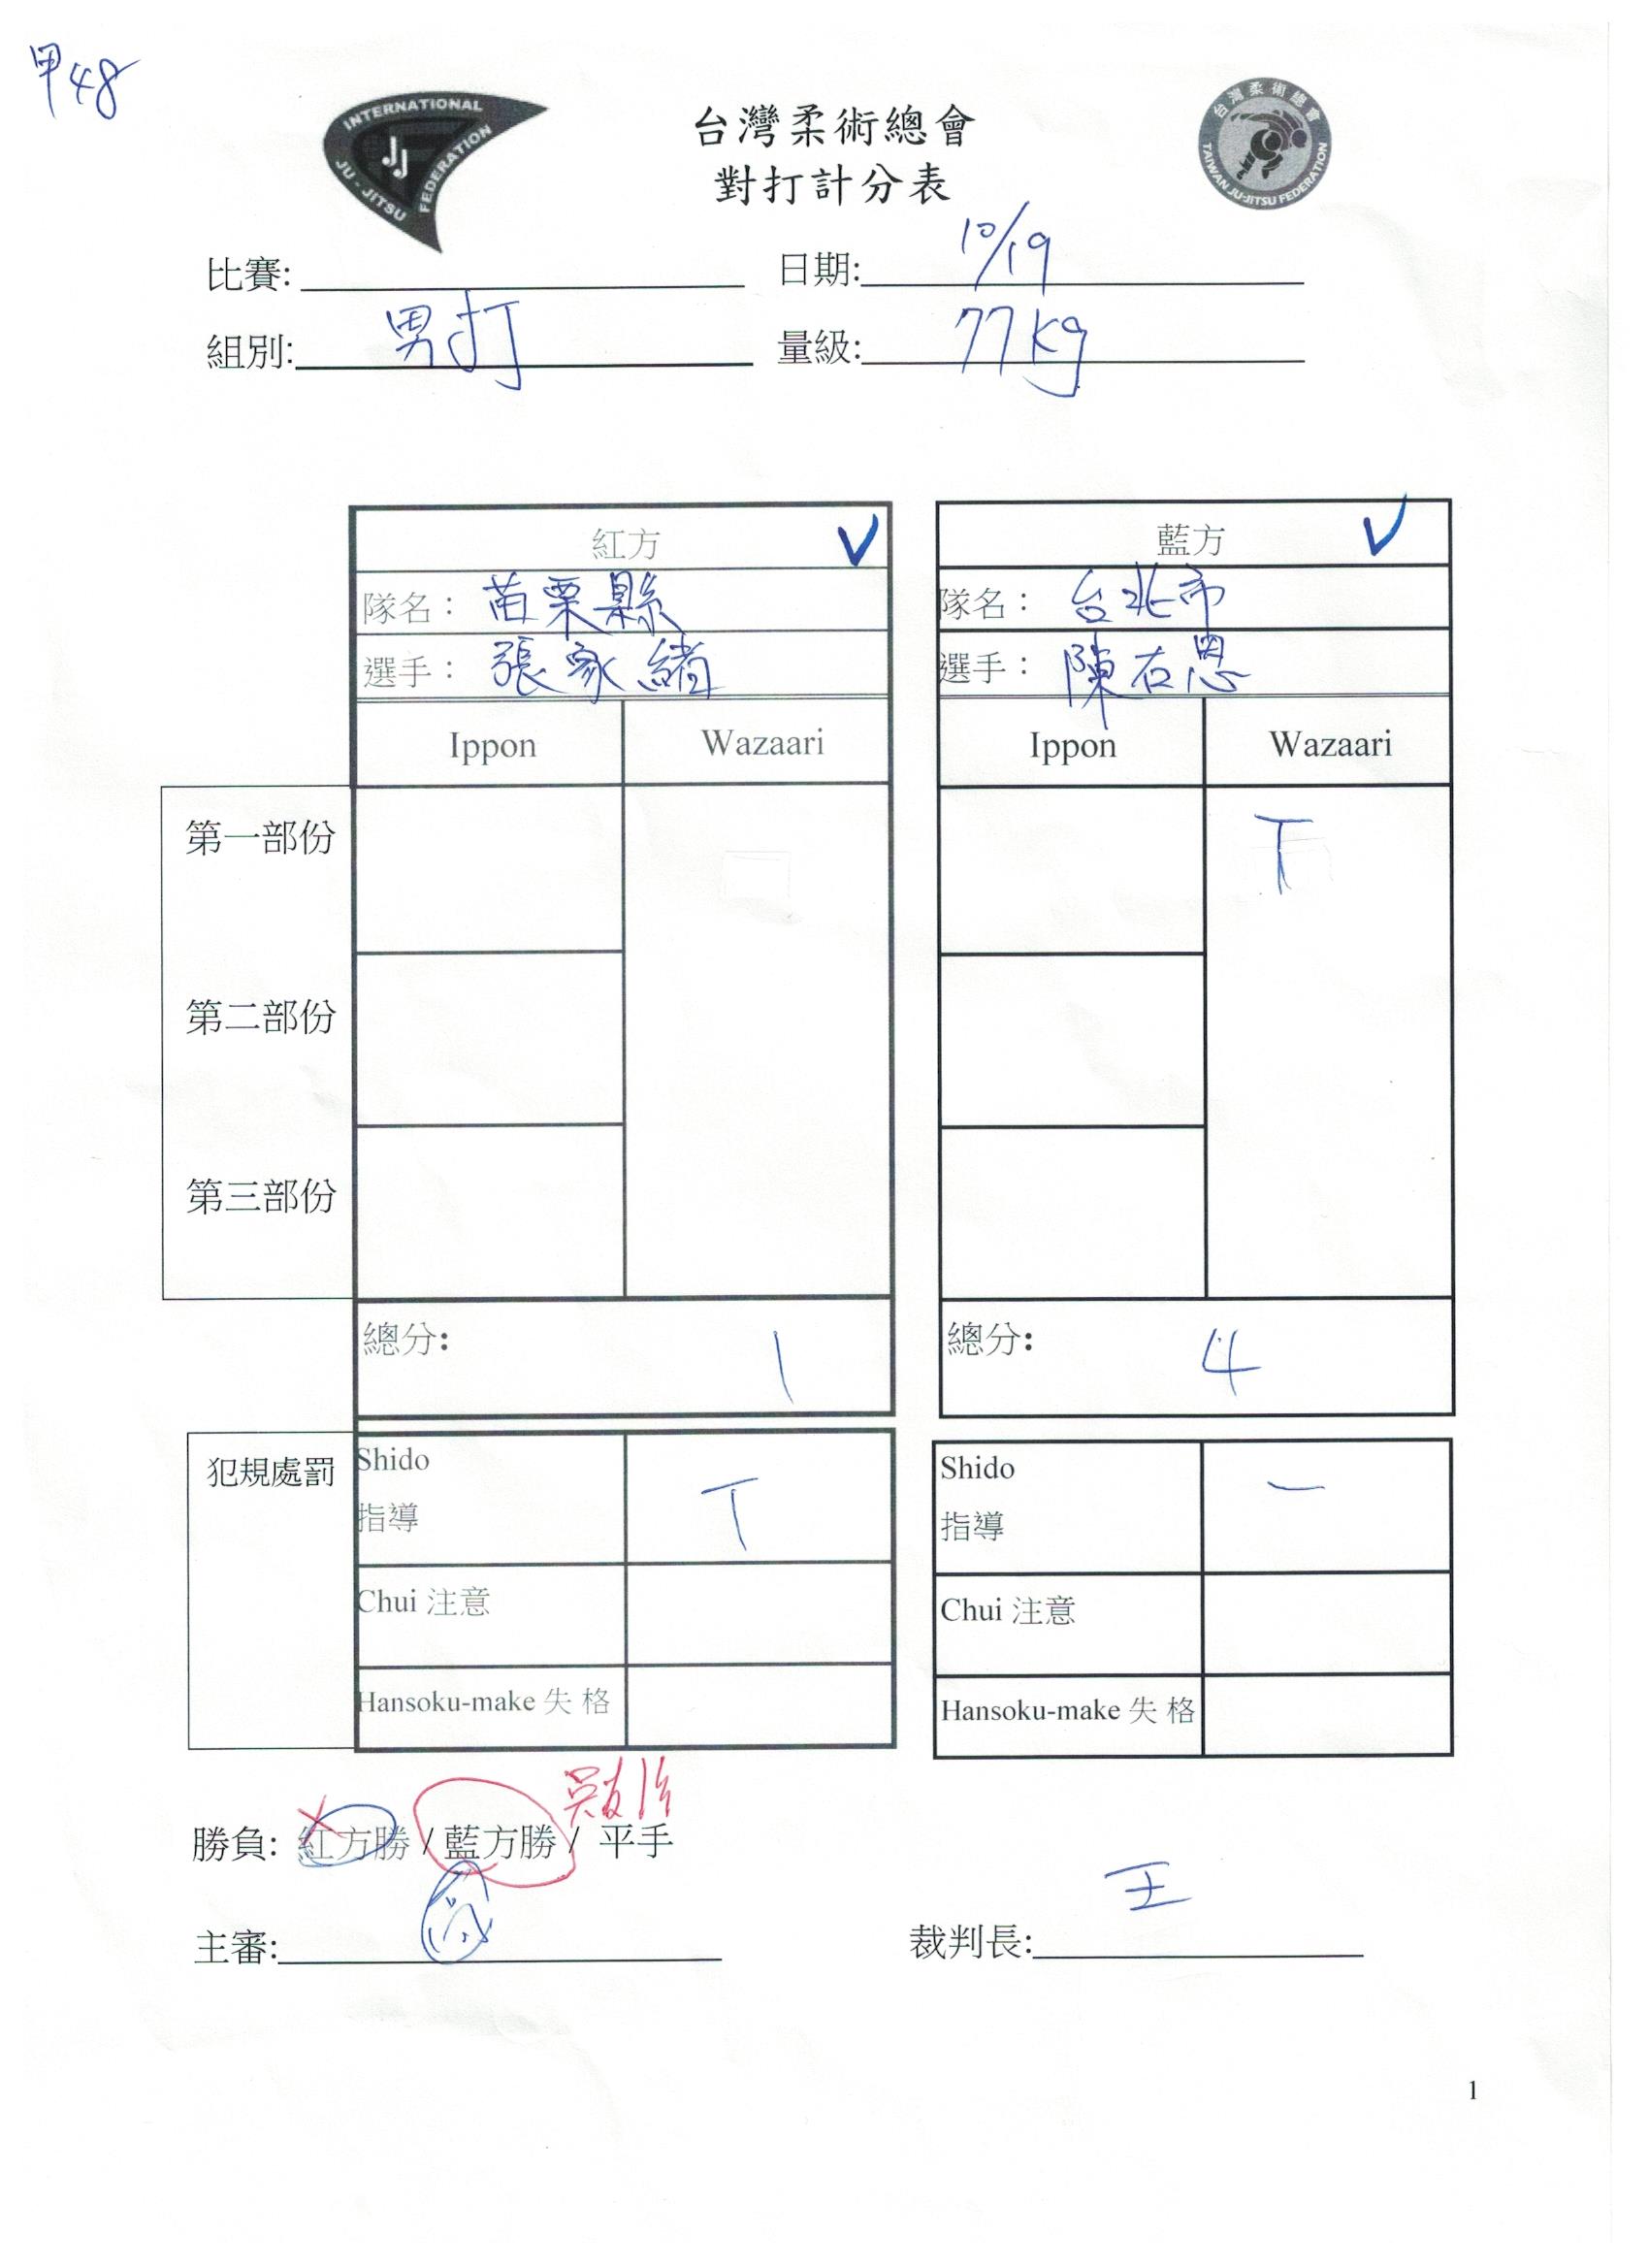 甲48
INTERNATIONAL
JJ
JU-JITSU
FEDERATION
台灣柔術總會
TAIWAN JU-JITSU FEDERATION
台灣柔術總會
對打計分表
比賽:
日期: 10/19
組別: 男打
量級: 77kg
紅方 V
隊名: 苗栗縣
選手: 張家緒
Ippon Wazaari
藍方 V
隊名: 台北市
選手: 陳右恩
Ippon Wazaari
第一部份
T
第二部份
第三部份
總分: 1
總分: 4
犯規處罰
Shido
指導
T
Chui 注意
Hansoku-make 失 格
Shido
指導
一
Chui 注意
Hansoku-make 失 格
勝負: 紅方勝 / 藍方勝 / 平手
主審:
裁判長: 王
1